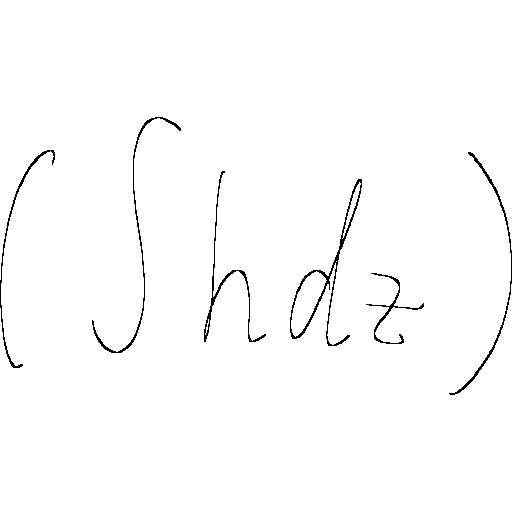 (∫hdz)